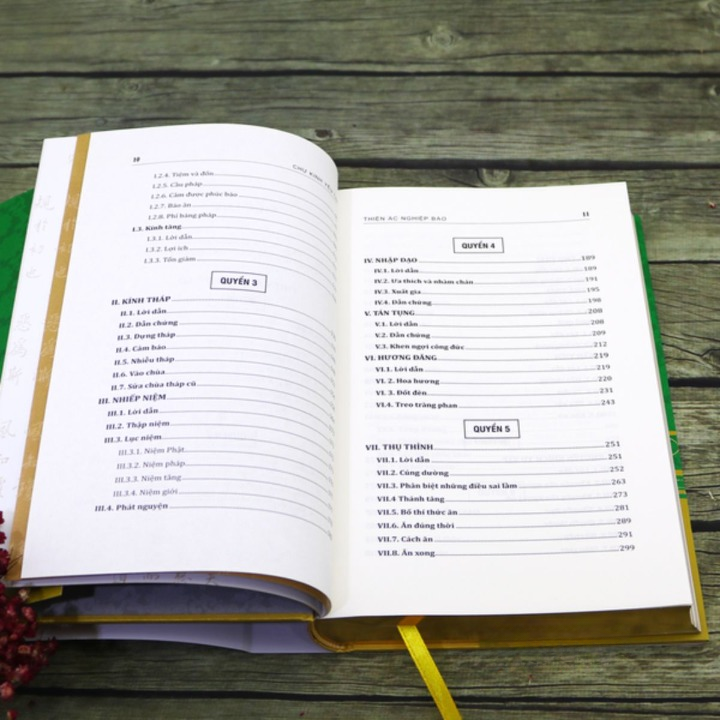 10
CHƯ KINH
I.2.4. Tiệm và đốn
I.2.5. Cầu pháp
I.2.6. Cảm được phúc báo
I.2.7. Báo ân
I.2.8. Phỉ báng pháp
I.3. Kính tăng
I.3.1. Lời dẫn
I.3.2. Lợi ích
I.3.3. Tổn giảm
QUYỂN 3
II. KÍNH THÁP
II.1. Lời dẫn
II.2. Dẫn chứng
II.3. Dựng tháp
II.4. Cảm báo
II.5. Nhiễu tháp
II.6. Vào chùa
II.7. Sửa chùa tháp cũ
III. NHIẾP NIỆM
III.1. Lời dẫn
III.2. Thập niệm
III.3. Lục niệm
III.3.1. Niệm Phật
III.3.2. Niệm pháp
III.3.3. Niệm tăng
III.3.4. Niệm giới
III.4. Phát nguyện
THIỆN ÁC NGHIỆP BÁO 11
QUYỂN 4
IV. NHẬP ĐẠO 189
IV.1. Lời dẫn 189
IV.2. Ưa thích và nhàm chán 191
IV.3. Xuất gia 195
IV.4. Dẫn chứng 198
V. TÁN TỤNG 208
V.1. Lời dẫn 208
V.2. Dẫn chứng 209
V.3. Khen ngợi công đức 212
VI. HƯƠNG ĐĂNG 219
VI.1. Lời dẫn 219
VI.2. Hoa hương 220
VI.3. Đốt đèn 231
VI.4. Treo tràng phan 243
QUYỂN 5
VII. THỤ THỈNH 251
VII.1. Lời dẫn 251
VII.2. Cúng dường 252
VII.3. Phân biệt những điều sai lầm 263
VII.4 Thánh tăng 273
VII.5. Bố thí thức ăn 281
VII.6. Ăn đúng thời 289
VII.7. Cách ăn 291
VII.8. Ăn xong 299